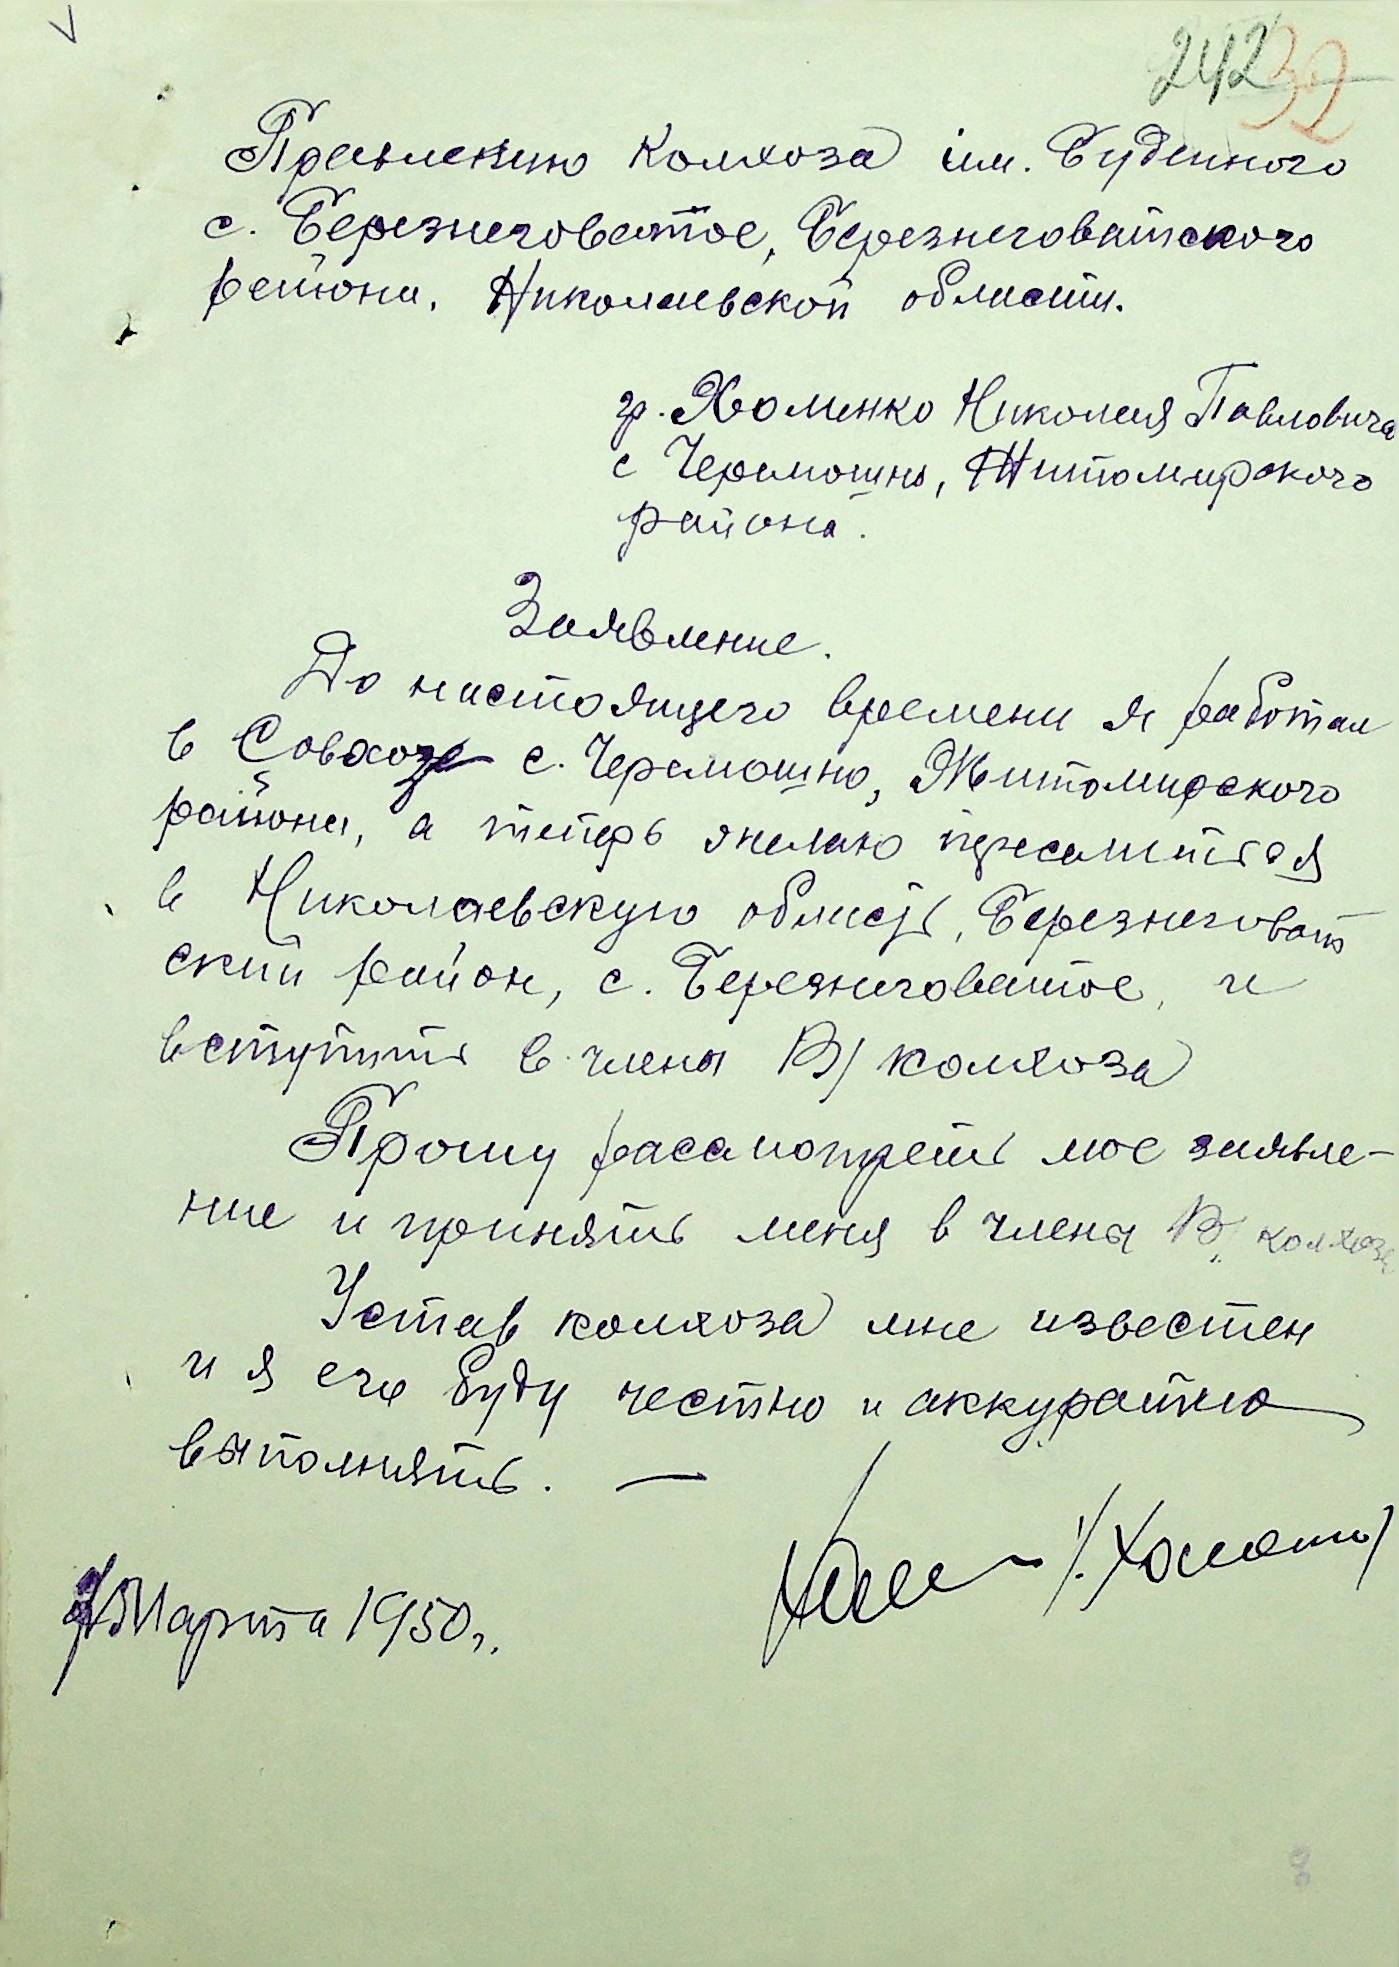 242 32
Правлению колхоза им. Буденного
с. Березнеговатое, Березнеговатского
района, Николаевской области.
гр. Хоменко Николая Павловича
с Черемошно, Житомирского
района.
Заявление.
До настоящего времени я работал
в Совхозе с. Черемошно, Житомирского
района, а теперь желаю переселится
в Николаевскую область, Березнеговат
ский район, с. Березнеговатое, и
вступить в члены В/ колхоза
Прошу рассмотреть мое заявле-
ние и принять меня в члены В/ колхоза
Устав колхоза мне известен
и я его буду честно и аккуратно
выполнять. —
Марта 1950 г.